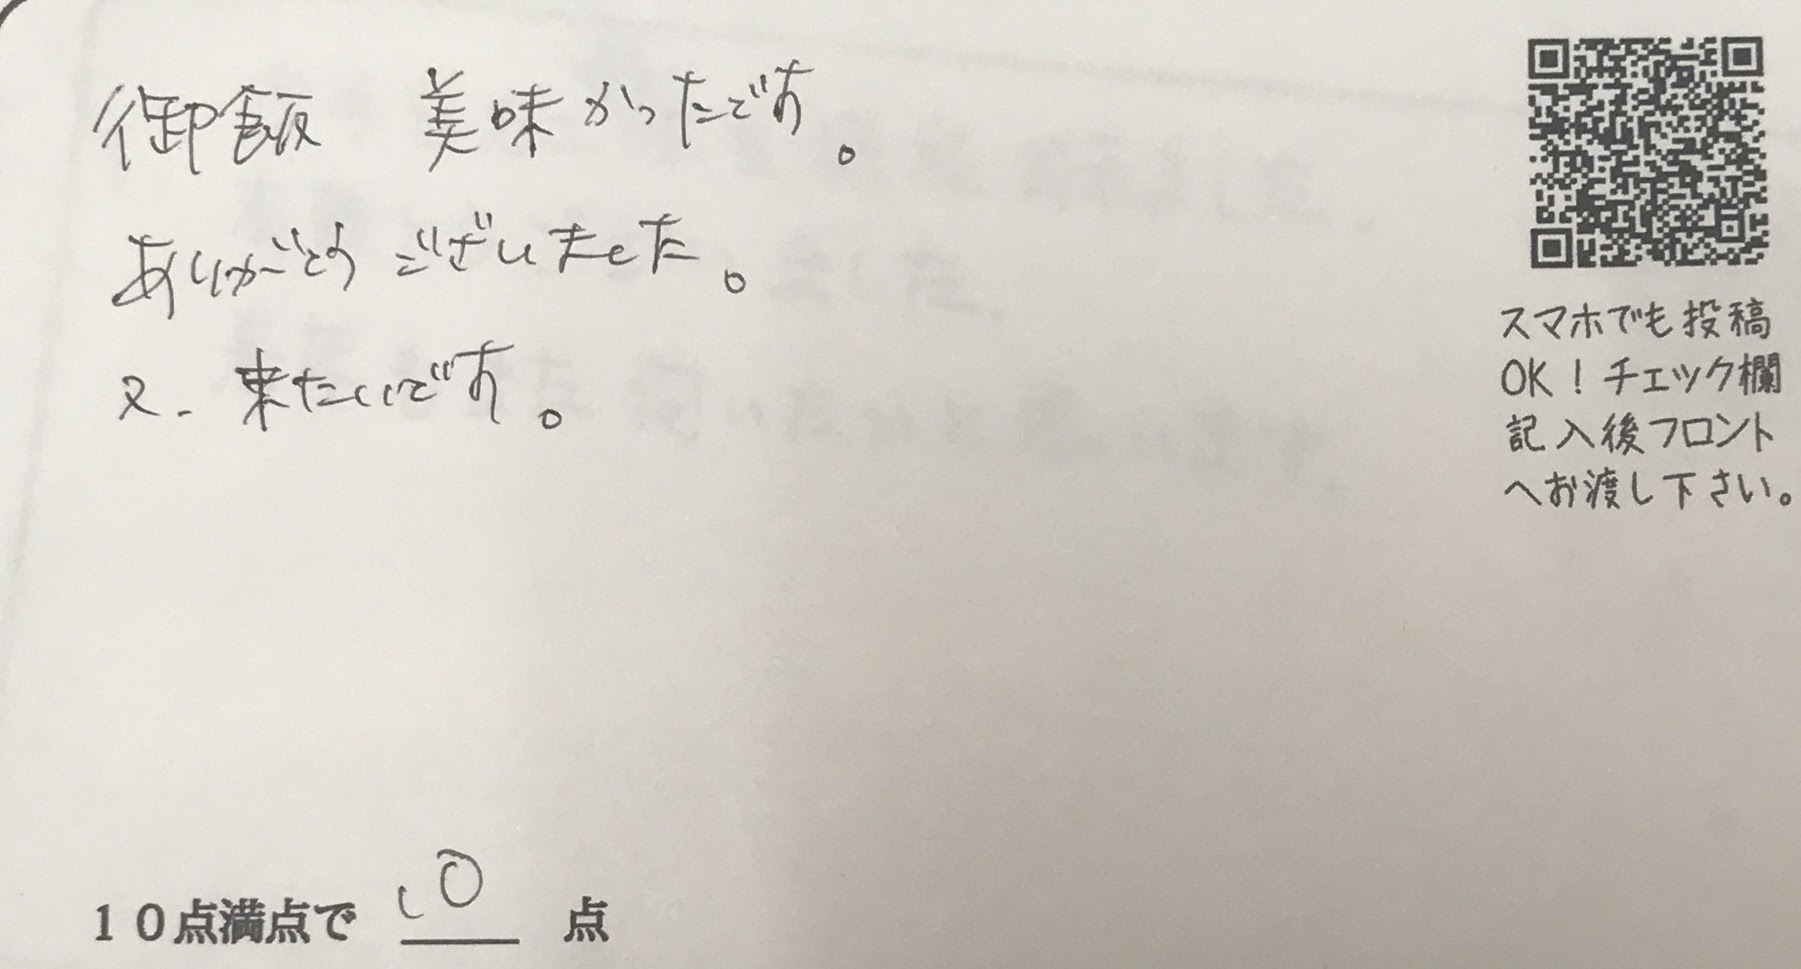 御飯 美味かったです。
ありがとうございました。
又、来たいです。
スマホでも投稿
OK！チェック欄
記入後フロント
へお渡し下さい。
10点満点で 10 点